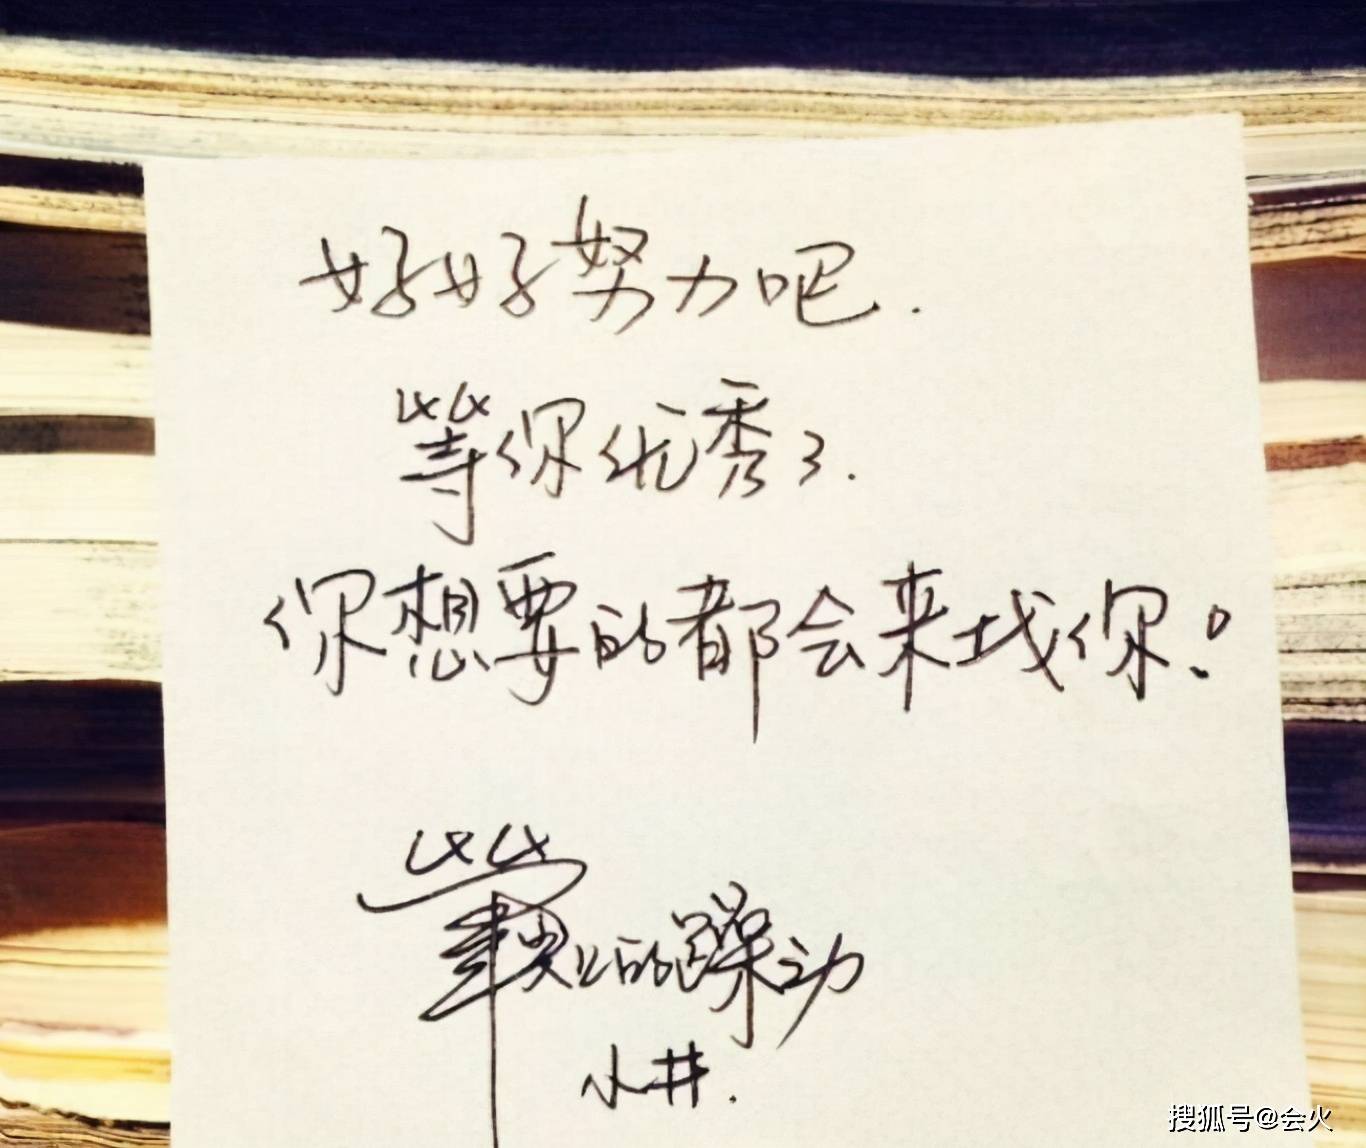 好好努力吧.
等你优秀了.
你想要的都会来找你!
笔尖上的躁动
小井.
搜狐号@会火